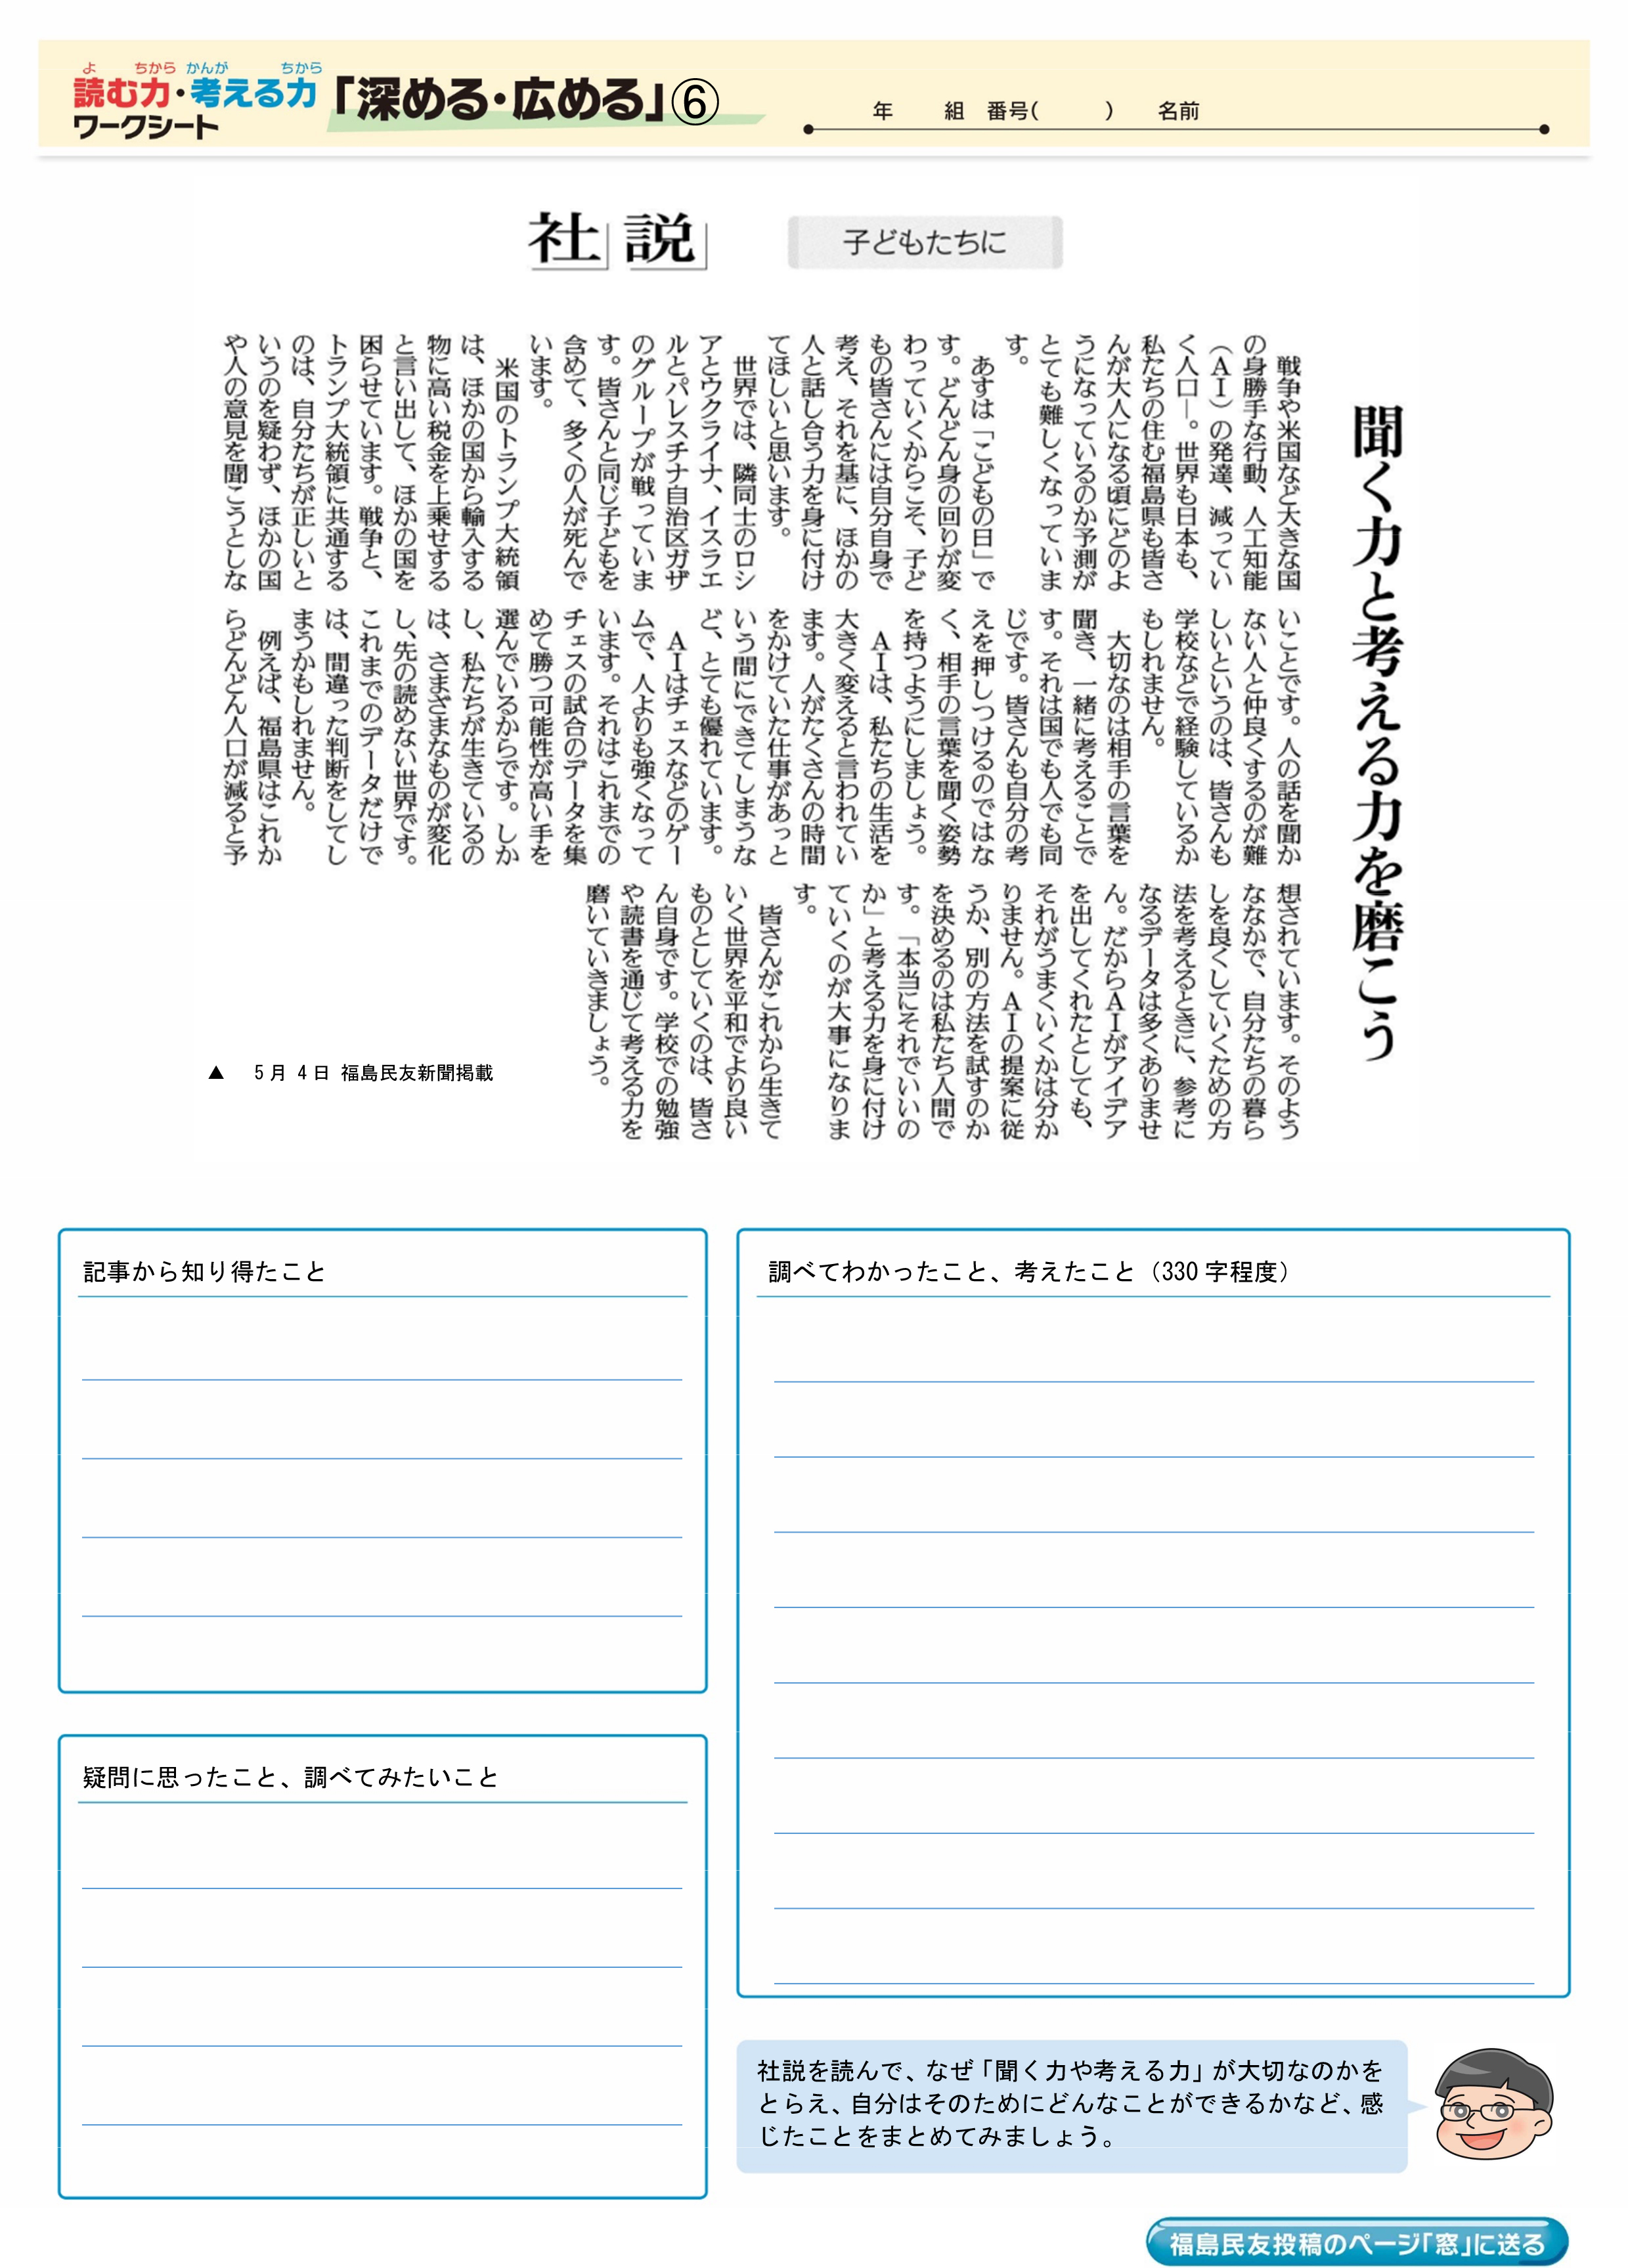 よ ちから かんが ちから
読む力・考える力
ワークシート
「深める・広める」⑥
年 組 番号( ) 名前
社説
子どもたちに
聞く力と考える力を磨こう
戦争や米国など大きな国
の身勝手な行動、人工知能
（ＡＩ）の発達、減ってい
く人口―。世界も日本も、
私たちの住む福島県も皆さ
んが大人になる頃にどのよ
うになっているのか予測が
とても難しくなっていま
す。
あすは「こどもの日」で
す。どんどん身の回りが変
わっていくからこそ、子ど
もの皆さんには自分自身で
考え、それを基に、ほかの
人と話し合う力を身に付け
てほしいと思います。
世界では、隣同士のロシ
アとウクライナ、イスラエ
ルとパレスチナ自治区ガザ
のグループが戦っていま
す。皆さんと同じ子どもを
含めて、多くの人が死んで
います。
米国のトランプ大統領
は、ほかの国から輸入する
物に高い税金を上乗せする
と言い出して、ほかの国を
困らせています。戦争と、
トランプ大統領に共通する
のは、自分たちが正しいと
いうのを疑わず、ほかの国
や人の意見を聞こうとしな
いことです。人の話を聞か
ない人と仲良くするのが難
しいというのは、皆さんも
学校などで経験しているか
もしれません。
大切なのは相手の言葉を
聞き、一緒に考えることで
す。それは国でも人でも同
じです。皆さんも自分の考
えを押しつけるのではな
く、相手の言葉を聞く姿勢
を持つようにしましょう。
ＡＩは、私たちの生活を
大きく変えると言われてい
ます。人がたくさんの時間
をかけていた仕事があっと
いう間にできてしまうな
ど、とても優れています。
ＡＩはチェスなどのゲー
ムで、人よりも強くなって
います。それはこれまでの
チェスの試合のデータを集
めて勝つ可能性が高い手を
選んでいるからです。しか
し、私たちが生きているの
は、さまざまなものが変化
し、先の読めない世界です。
これまでのデータだけで
は、間違った判断をしてし
まうかもしれません。
例えば、福島県はこれか
らどんどん人口が減ると予
想されています。そのよう
ななかで、自分たちの暮ら
しを良くしていくための方
法を考えるときに、参考に
なるデータは多くありませ
ん。だからＡＩがアイデア
を出してくれたとしても、
それがうまくいくかは分か
りません。ＡＩの提案に従
うか、別の方法を試すのか
を決めるのは私たち人間で
す。「本当にそれでいいの
か」と考える力を身に付け
ていくのが大事になりま
す。
皆さんがこれから生きて
いく世界を平和でより良い
ものとしていくのは、皆さ
ん自身です。学校での勉強
や読書を通じて考える力を
磨いていきましょう。
▲ 5月 4日 福島民友新聞掲載
記事から知り得たこと
疑問に思ったこと、調べてみたいこと
調べてわかったこと、考えたこと（330字程度）
社説を読んで、なぜ「聞く力や考える力」が大切なのかを
とらえ、自分はそのためにどんなことができるかなど、感
じたことをまとめてみましょう。
福島民友投稿のページ「窓」に送る